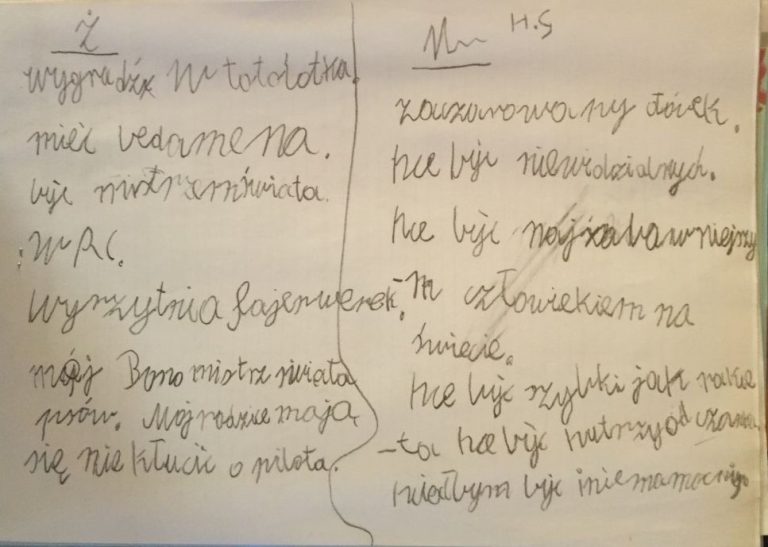 Ż
wygradźx w totolotka.
mieć bedamena.
byc mistrzem świata
w RC.
wyrzytnia fajerwerek.
mój Bono mistrz świata
psów. Moji rodzice mają
się nie kłucic o pilota.
H.S
zauzarowany dóvek.
hce byc niewidzialnych.
hce byc najzabawniejszy
-m człowiekiem na
świecie.
hce byc szybki jak rakie
-ta hce byc hutrzy od
byc